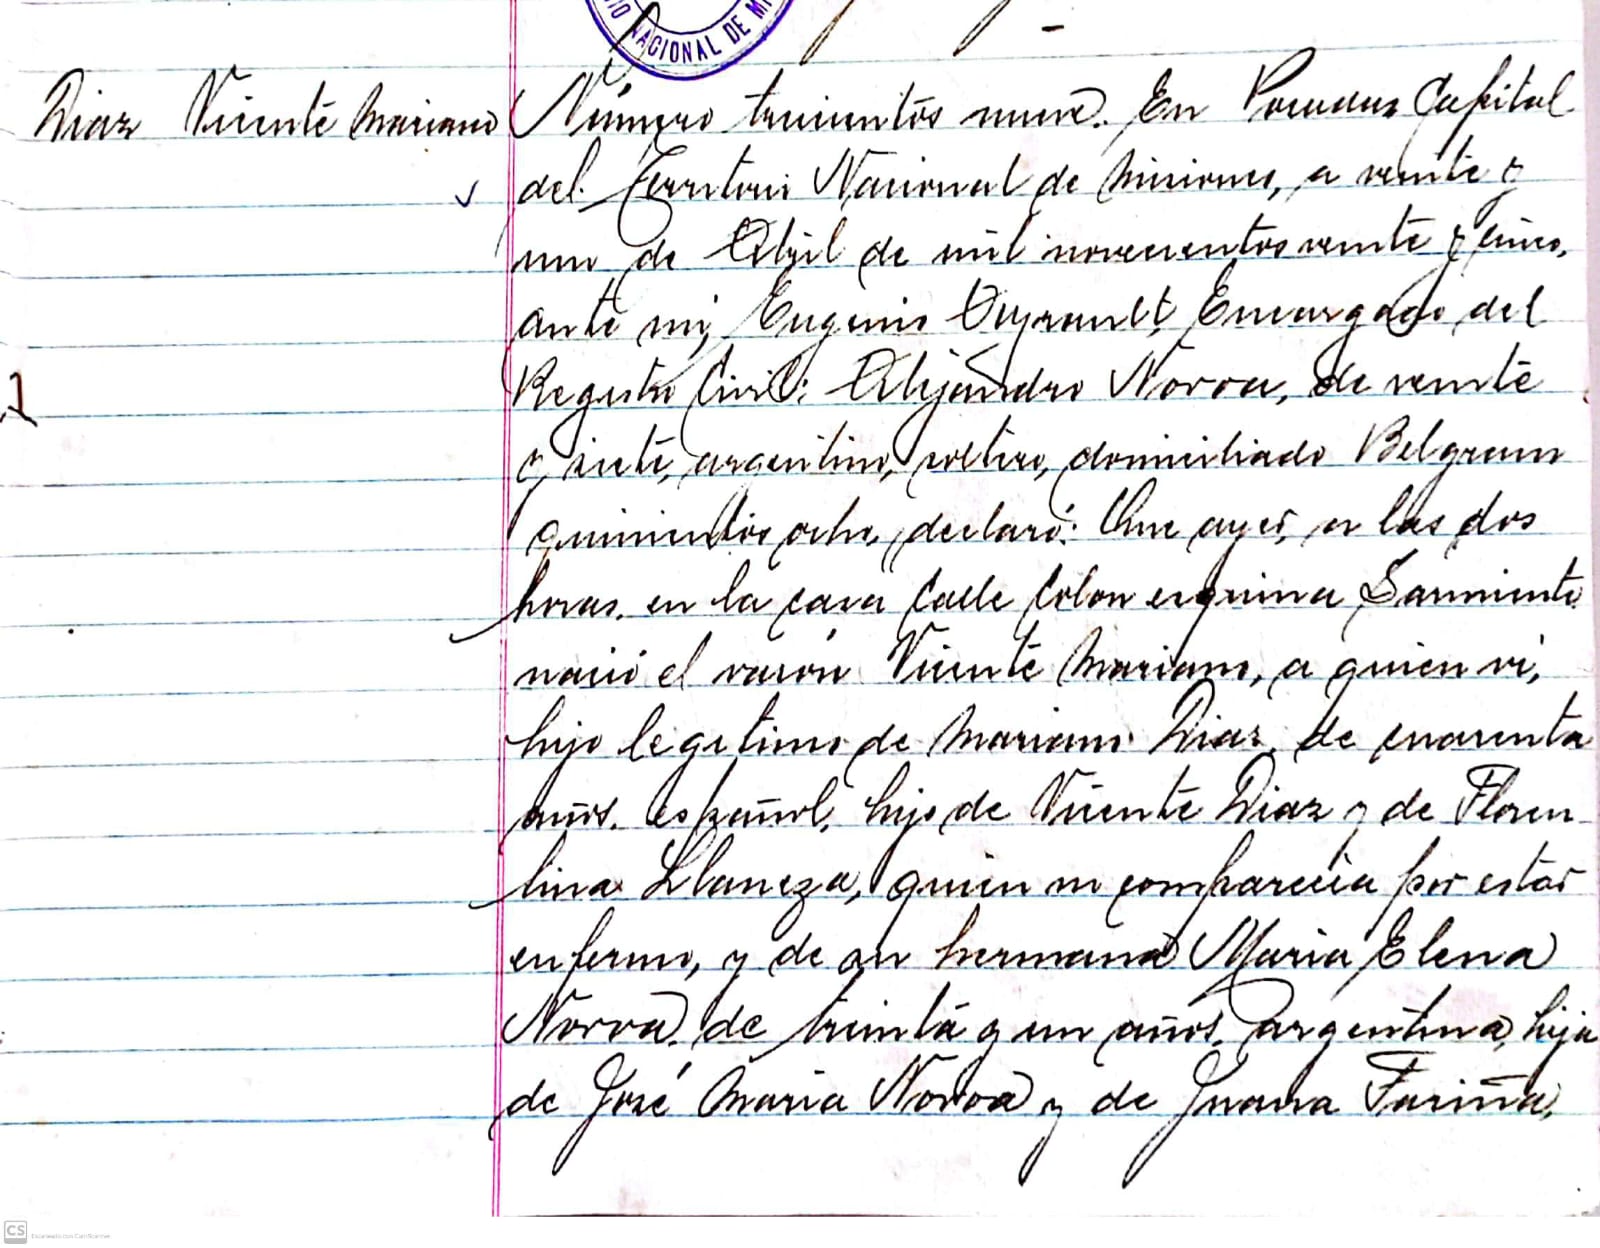 NACIONAL DE MI
Diaz Vicente Mariano
Número trecientos nueve. En Posadas Capital
del Territorio Nacional de Misiones, a veinte y
uno de Abril de mil novecientos veinte y cinco,
ante mi, Eugenio Encargado del
Registro Civil: Alejandro Novoa, de veinte
y siete, argentino, soltero, domiciliado Belgrano
quinientos ocho, declaró: Que ayer, a las dos
horas, en la casa Calle Colon esquina Sarmiento
nació el varón Vicente Mariano, a quien vi,
hijo legitimo de Mariano Diaz, de cuarenta
años, español, hijo de Vicente Diaz y de Floren-
tina Llaneza, quien no comparecia por estar
enfermo, y de su hermana Maria Elena
Novoa, de treinta y un años, argentina, hija
de José Maria Novoa y de Juana Fariña,
CS Escaneado con CamScanner